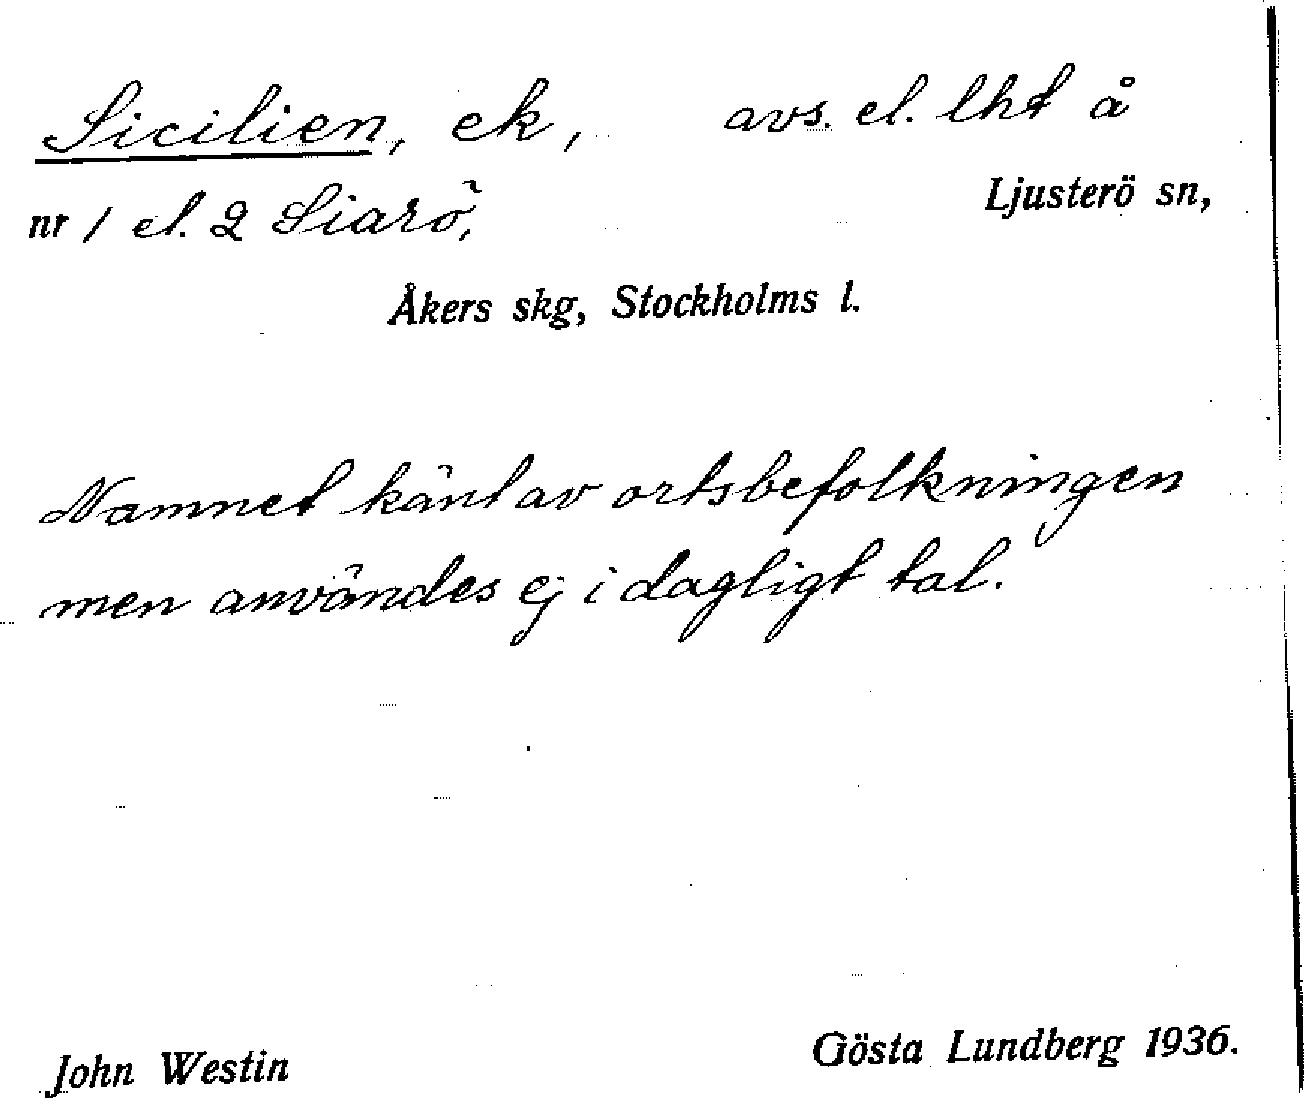 Sicilien, ek, avs. el. lht å
nr 1 el. 2 Siarö, Ljusterö sn,
Åkers skg, Stockholms l.
Namnet känt av ortsbefolkningen
men användes ej i dagligt tal.
John Westin Gösta Lundberg 1936.